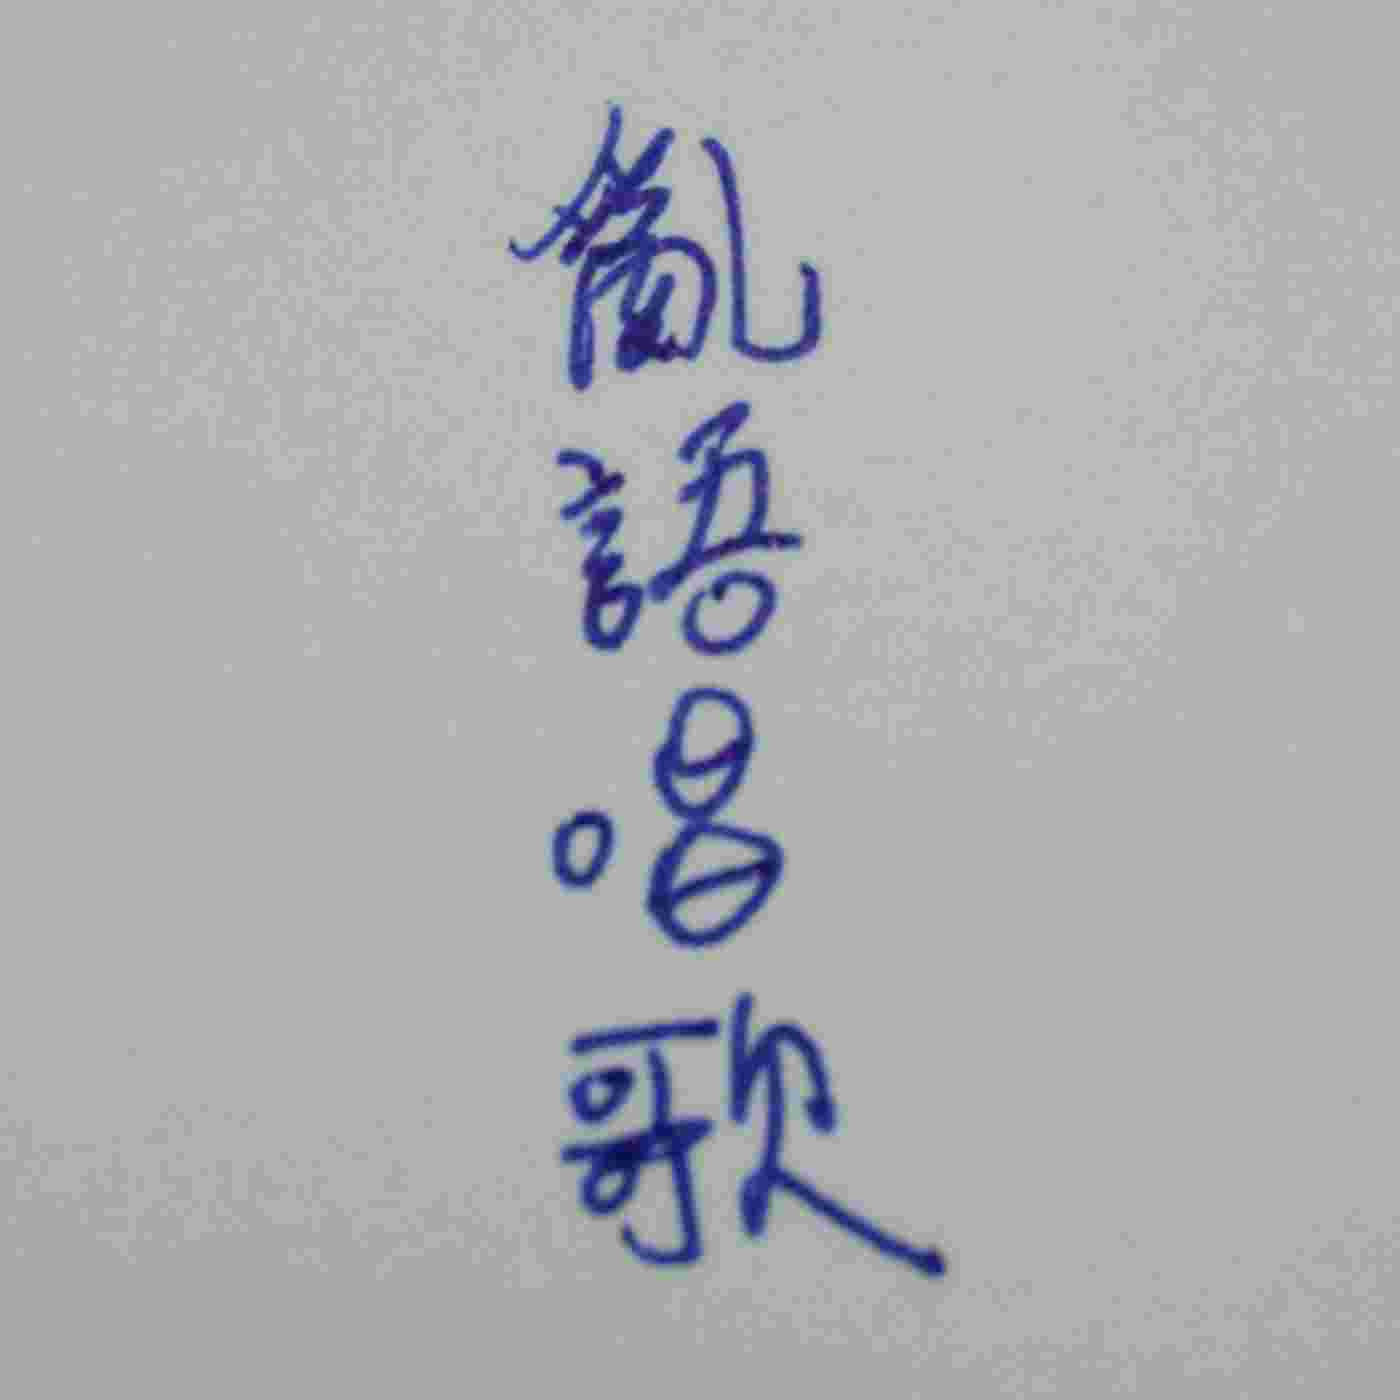 亂語唱歌